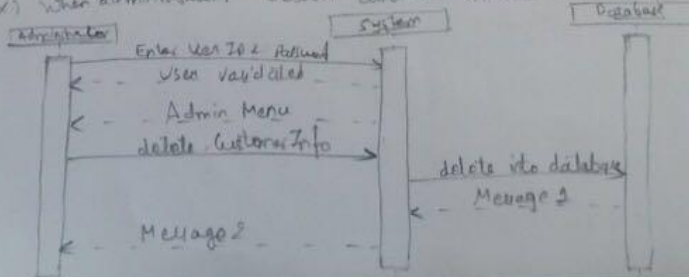 When
Administrator
System
Database
Enter User ID & Password
User validated
Admin Menu
delete Customer Info
delete into database
Message 1
Message 2